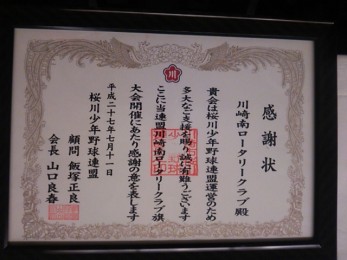 感謝状
川崎南ロータリークラブ殿
貴会は桜川少年野球連盟運営のため
多大なご支援を賜り誠に有難うございます
ここに当連盟川崎南ロータリークラブ旗
大会開催にあたり感謝の意を表します
平成二十七年七月十一日
桜川少年野球連盟
顧問 飯塚正良
会長 山口良春
川